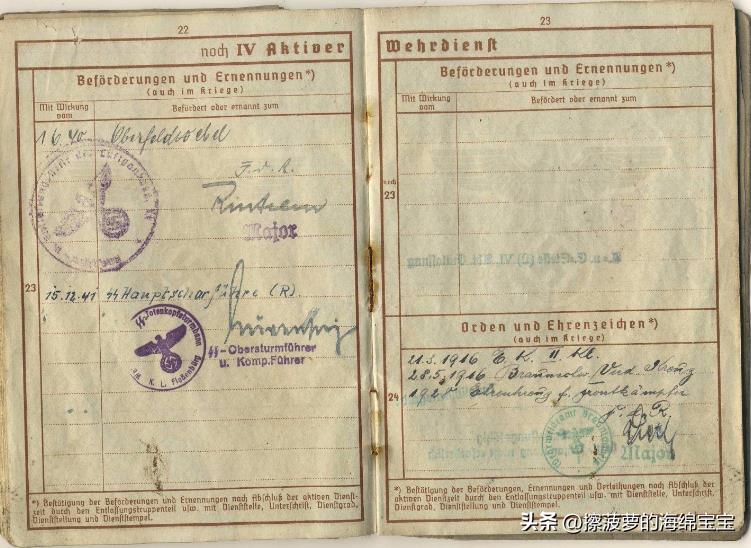 22
noch IV Aktiver
Beförderungen und Ernennungen*)
(auch im Kriege)
Mit Wirkung vom
Befördert oder ernannt zum
1.6.40 Oberfeldwebel
Major
23
15.12.41 SS Hauptscharführer (R)
SS-Totenkopfsturmbann
K. L. Floßenbürg
SS-Obersturmführer
u. Komp.Führer
*) Bestätigung der Beförderungen und Ernennungen nach Abschluß der aktiven Dienst-
zeit durch den Entlassungstruppenteil usw. mit Dienststelle, Unterschrift, Dienstgrad,
Dienststellung und Dienststempel.
23
Wehrdienst
Beförderungen und Ernennungen*)
(auch im Kriege)
Mit Wirkung vom
Befördert oder ernannt zum
noch
23
Orden und Ehrenzeichen*)
(auch im Kriege)
21.3.1916 E. K. II. kl.
28.5.1916 Braunschw. Verd. Kreuz
24
Ehrenkreuz f. Frontkämpfer
Major
*) Bestätigung der Beförderungen, Ernennungen und Verleihungen nach Abschluß der
aktiven Dienstzeit durch den Entlassungstruppenteil usw. mit Dienststelle, Unterschrift,
Dienstgrad, Dienststellung und Dienststempel.
头条 @擦菠萝的海绵宝宝